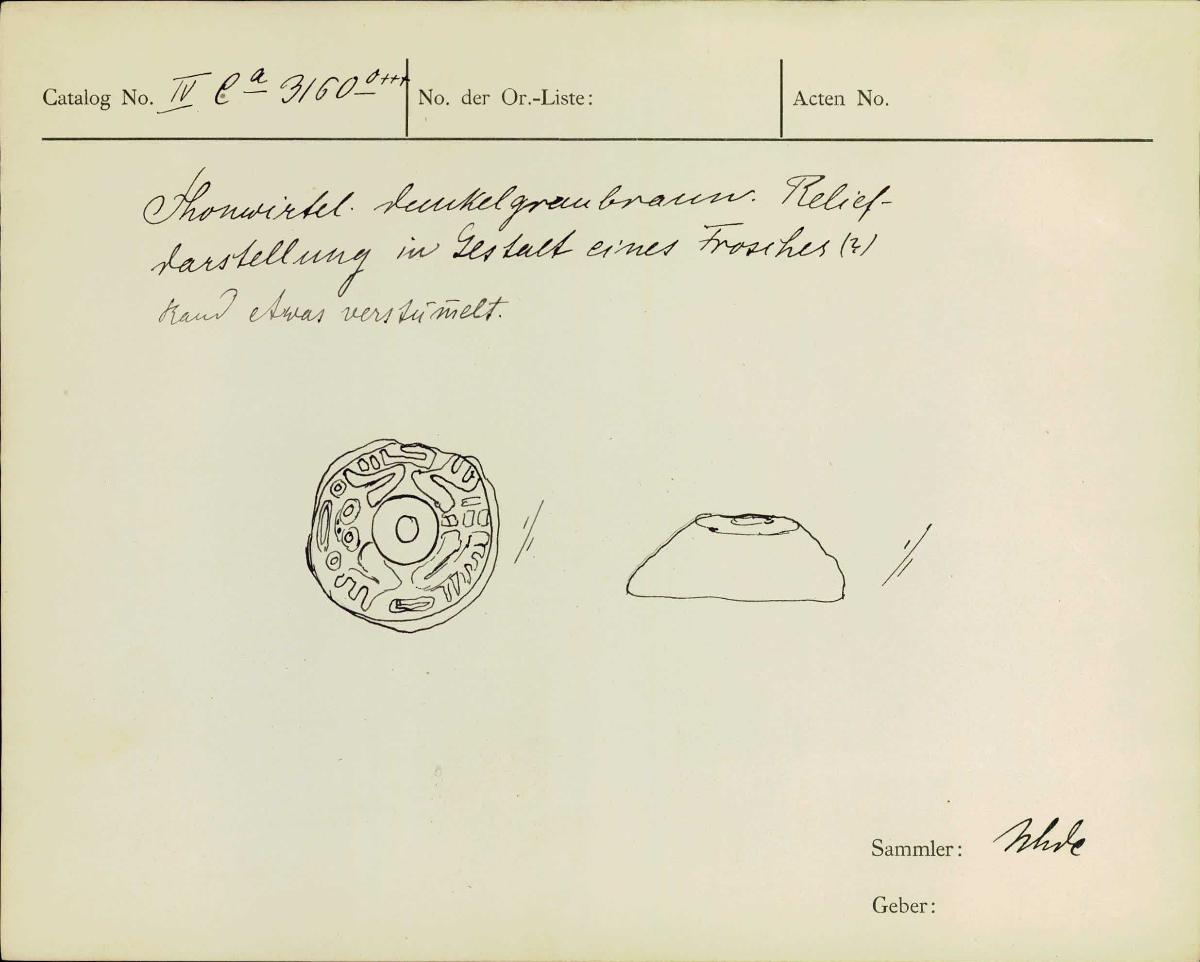 Catalog No. IV Ca 3160 o+++ No. der Or.-Liste: Acten No.
Thonwirtel. dunkelgraubraun. Relief-
darstellung in Gestalt eines Frosches (?)
Rand etwas verstüm̅elt.
1/1 1/1
Sammler: Uhde
Geber: